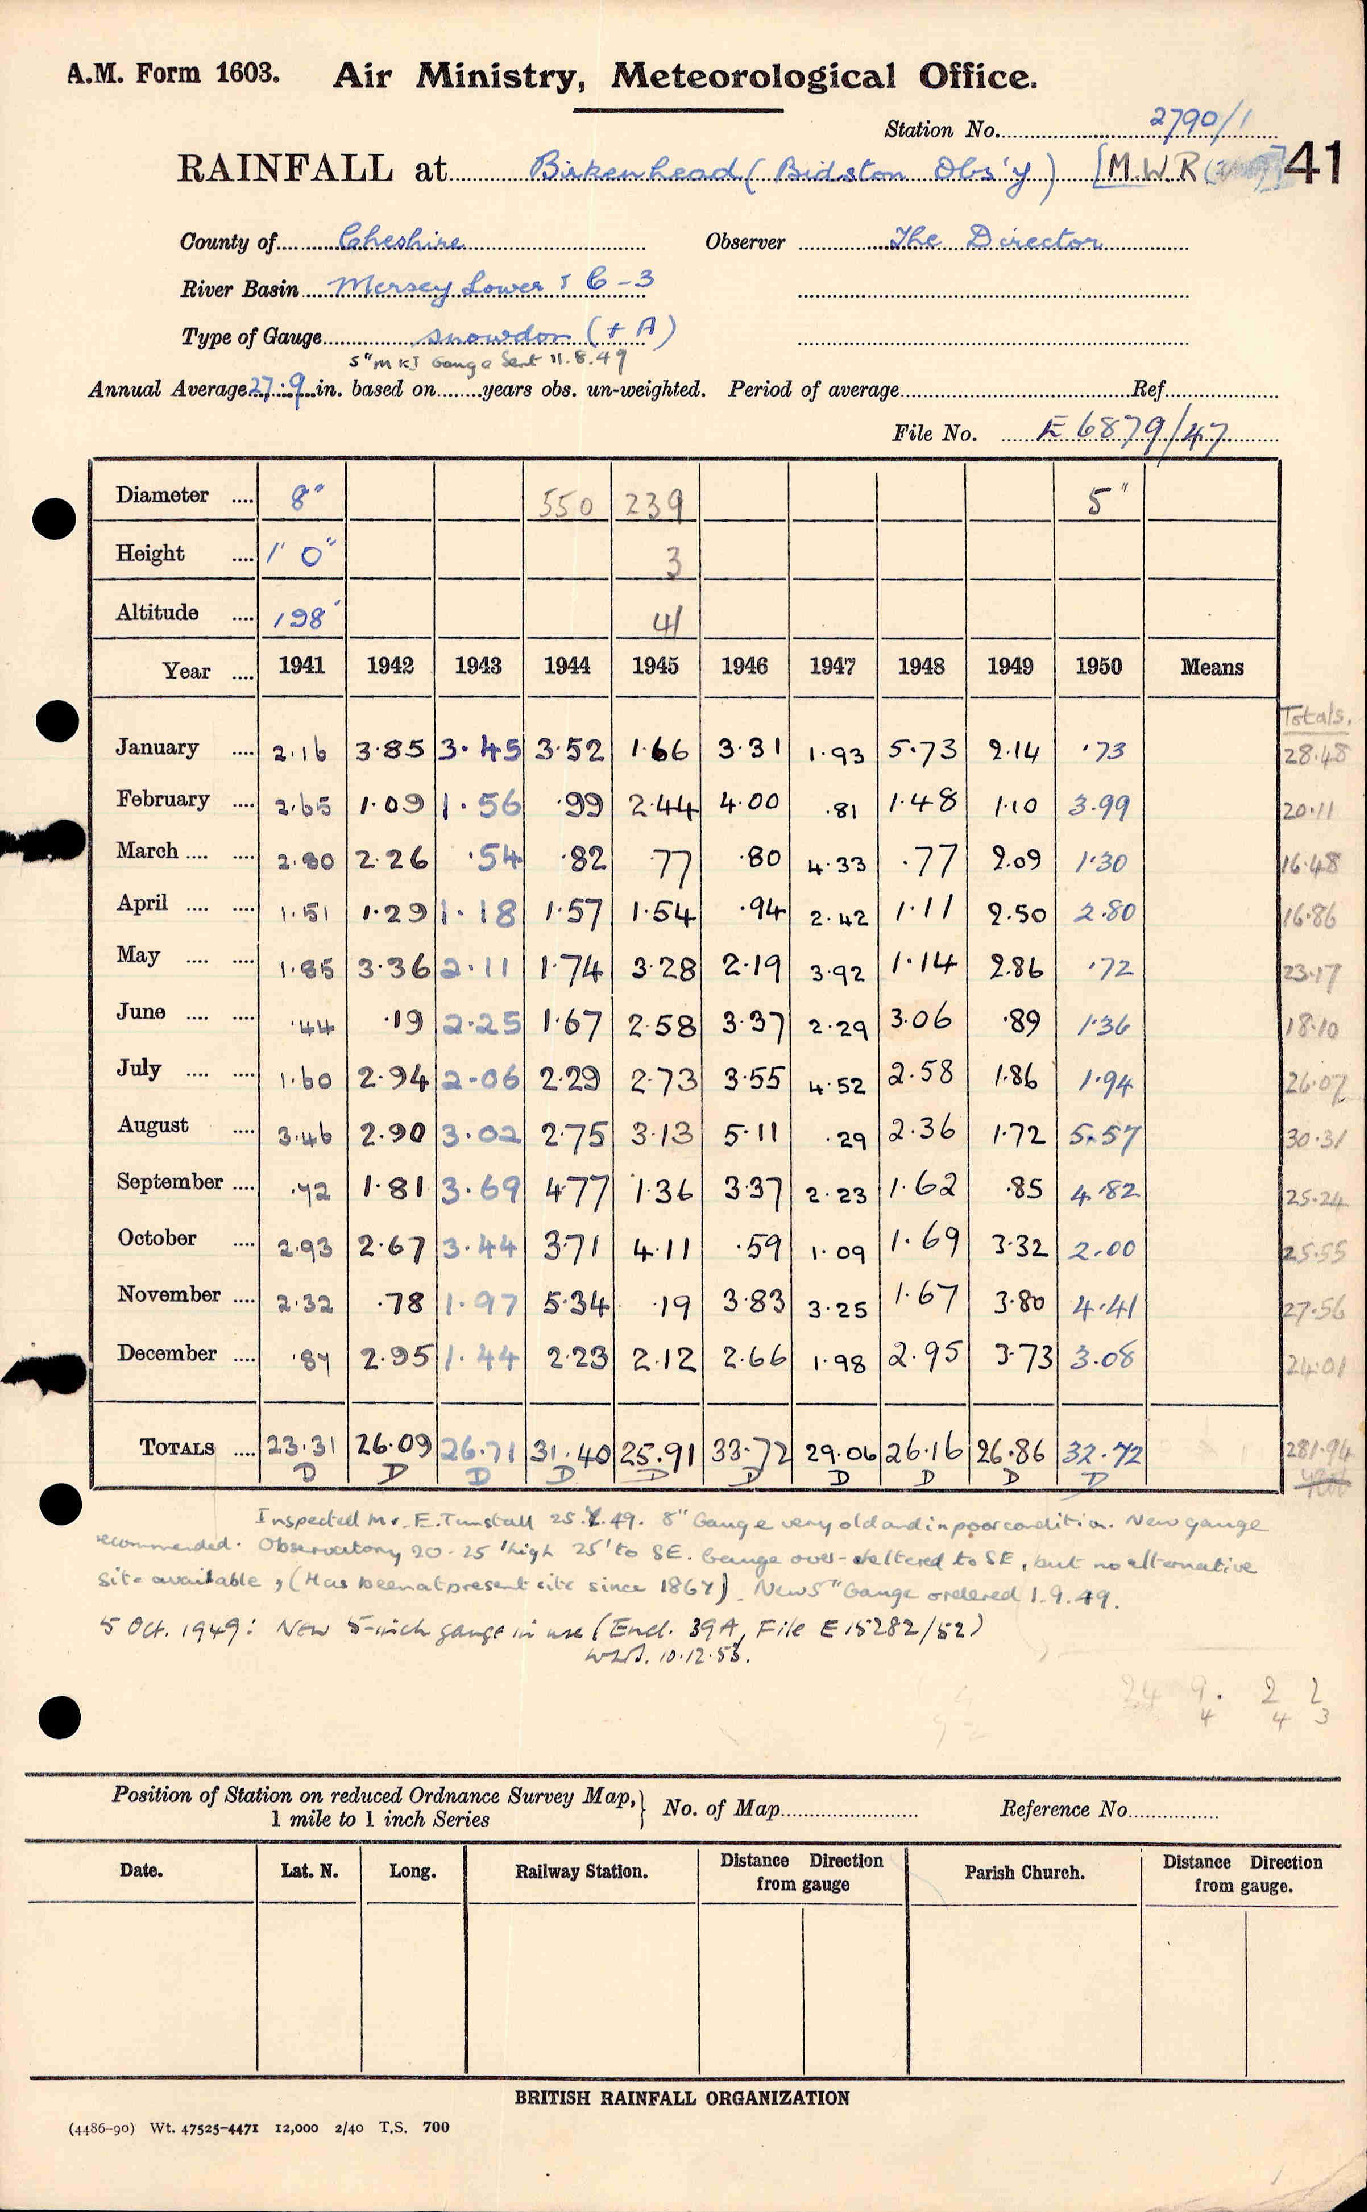 A.M. Form 1603. Air Ministry, Meteorological Office.
Station No. 2790/1
RAINFALL at Birkenhead (Bidston Obs'y) [M.W.R 41
County of Cheshire Observer The Director
River Basin Mersey Lower & C-3
Type of Gauge Snowdon (+ A)
5" MKI Gauge Sent 11.8.49
Annual Average 27.9 in. based on years obs. un-weighted. Period of average Ref.
File No. E6879/47
Diameter 8" 550 239 5"
Height 1' 0" 3
Altitude 198' 41
Year 1941 1942 1943 1944 1945 1946 1947 1948 1949 1950 Means
Totals.
January 2.16 3.85 3.45 3.52 1.66 3.31 1.93 5.73 2.14 .73 28.48
February 2.65 1.09 1.56 .99 2.44 4.00 .81 1.48 1.10 3.99 20.11
March 2.80 2.26 .54 .82 .77 .80 4.33 .77 2.09 1.30 16.48
April 1.51 1.29 1.18 1.57 1.54 .94 2.42 1.11 2.50 2.80 16.86
May 1.85 3.36 2.11 1.74 3.28 2.19 3.92 1.14 2.86 .72 23.17
June .44 .19 2.25 1.67 2.58 3.37 2.29 3.06 .89 1.36 18.10
July 1.60 2.94 2.06 2.29 2.73 3.55 4.52 2.58 1.86 1.94 26.07
August 3.46 2.90 3.02 2.75 3.13 5.11 .29 2.36 1.72 5.57 30.31
September .72 1.81 3.69 4.77 1.36 3.37 2.23 1.62 .85 4.82 25.24
October 2.93 2.67 3.44 3.71 4.11 .59 1.09 1.69 3.32 2.00 25.55
November 2.32 .78 1.97 5.34 .19 3.83 3.25 1.67 3.80 4.41 27.56
December .87 2.95 1.44 2.23 2.12 2.66 1.98 2.95 3.73 3.08 24.01
TOTALS 23.31 26.09 26.71 31.40 25.91 33.72 29.06 26.16 26.86 32.72 281.94
D D D D D D D D D D
Inspected Mr. E. Tunstall 25.7.49. 8" Gauge very old and in poor condition. New gauge
recommended. Observatory 20-25' high 25' to SE. Gauge over-sheltered to SE, but no alternative
site available, (Has been at present site since 1867). New 5" Gauge ordered 1.9.49.
5 Oct. 1949: New 5-inch gauge in use (Encl. 39A, File E15282/52)
10.12.53.
24 9. 2 2
4 4 3
Position of Station on reduced Ordnance Survey Map, } No. of Map Reference No.
1 mile to 1 inch Series
Date. Lat. N. Long. Railway Station. Distance Direction from gauge Parish Church. Distance Direction from gauge.
BRITISH RAINFALL ORGANIZATION
(4486-90) Wt. 47525-4471 12,000 2/40 T.S. 700